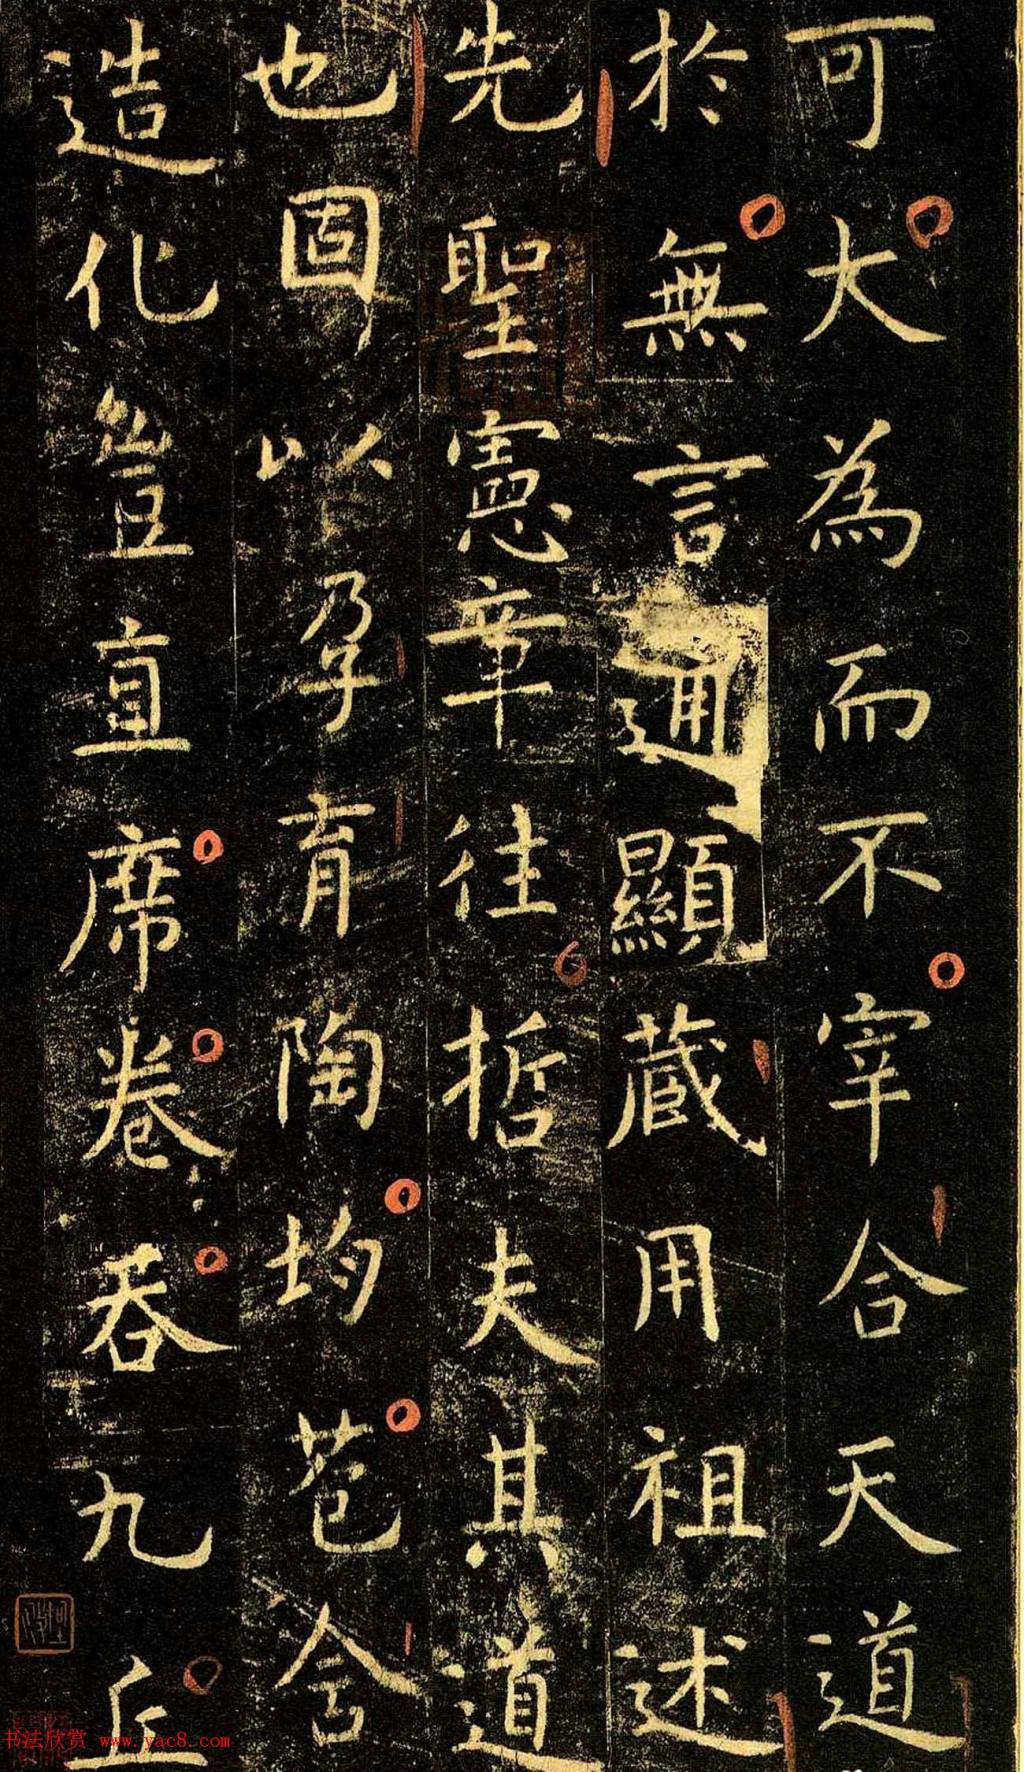 可大為而不宰合天道
於無言通顯藏用祖述
先聖憲章往哲夫其道
也固以孕育陶均苞含
造化豈直席卷八
九丘
书法欣赏 www.yac8.com